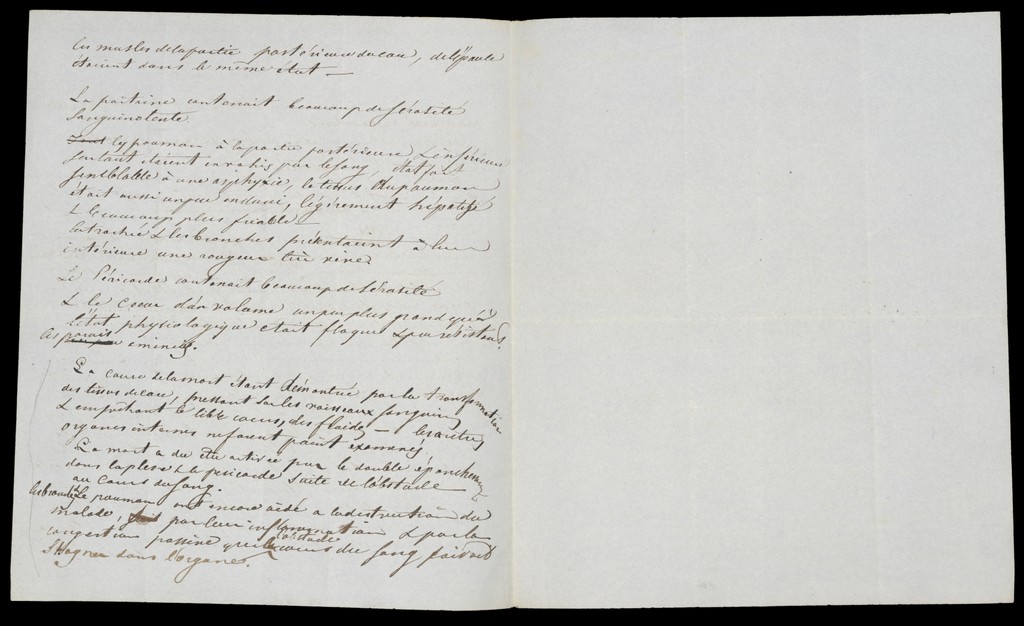 les muscles de la partie postérieure du cou, de l'épaule
étaient dans le même état —
La poitrine contenait beaucoup de sérosité
Sanguinolente.
les poumons à la partie postérieure & inférieure
surtout étaient envahis par le sang, état fort
semblable à une asphyxie, le tissus du poumon
était aussi un peu endurci, légèrement hépatisé
& beaucoup plus friable —
la trachée & les bronches présentaient à leur
intérieur une rougeur très vive
Le Péricarde contenait beaucoup de sérosité
& le Coeur d'un volume un peu plus grand qu'à
l'état physiologique etait flaque & peu résistant.
Les parois amincies.
La cause de la mort étant démontrée par la transformation
des tissus du cou, pressant sur les vaisseaux sanguins
& empêchant le libre cours des fluides — les autres
organes internes ne furent point examinés
La mort a du être activée par le double épanchement
dans la plèvre & le pericarde suite de l'obstacle
au Cours du sang.
les bronches & le poumon ont encore aidé à la destruction du
malade, par leur inflammation & par la
congestion passive que l'obstacle au cours du sang faisait
Stagner dans l'organe.